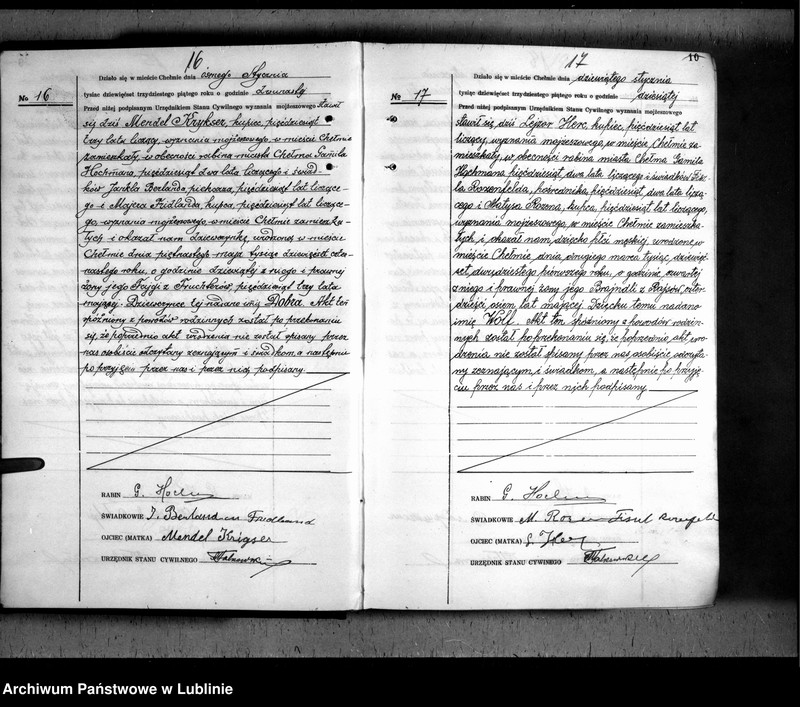 16
Działo się w mieście Chełmie dnia ósmego Stycznia
tysiąc dziewięćset trzydziestego piątego roku o godzinie
No 16
Przed niżej podpisanym Urzędnikiem Stanu Cywilnego wyznania mojżeszowego stawił
się dziś Mendel Krykser, kupiec, pięćdziesiąt
trzy lata liczący, wyznania mojżeszowego, w mieście Chełmie
zamieszkały, w obecności rabina miasta Chełma Gamila
Hochmana, pięćdziesiąt dwa lata liczącego i świad-
ków Jankla Berlanda piekarza, pięćdziesiąt lat liczące-
go i Majera Fridlanda, kupca, pięćdziesiąt lat liczące-
go wyznania mojżeszowego w mieście Chełmie zamieszka-
łych i okazał nam dziewczynkę, urodzoną w mieście
Chełmie dnia piętnastego maja tysiąc dziewięćset czter-
nastego roku, o godzinie dziewiątej z niego i prawnej
żony jego Fajgi z pięćdziesiąt trzy lata
mającej. Dziewczynce tej nadano imię Dobra. Akt ten
spóźniony z powodów rodzinnych został po przekonaniu
się, że poprzednio akt urodzenia nie został spisany przez
nas osobiście odczytany zeznającym i świadkom, a następnie
po przyjęciu przez nas i przez nich podpisany.
RABIN G. Hochman
ŚWIADKOWIE J. Berland m Fridland
OJCIEC (MATKA) Mendel Krigser
URZĘDNIK STANU CYWILNEGO
17
10
Działo się w mieście Chełmie dnia dziewiątego stycznia
tysiąc dziewięćset trzydziestego piątego roku o godzinie dziesiątej
No 17
Przed niżej podpisanym Urzędnikiem Stanu Cywilnego wyznania mojżeszowego
stawił się dziś Lejzor Herc, kupiec, pięćdziesiąt lat
liczący, wyznania mojżeszowego, w mieście Chełmie za-
mieszkały, w obecności rabina miasta Chełma Gamila
Hochmana pięćdziesiąt dwa lata liczącego i świadków Fisz-
la Rozenfelda, pośrednika, pięćdziesiąt dwa lata liczą-
cego i Matysa Rozena, kupca, pięćdziesiąt lat liczącego,
wyznania mojżeszowego, w mieście Chełmie zamieszka-
łych i okazał nam dziecko płci męskiej urodzone w
mieście Chełmie dnia drugiego marca tysiąc dziewięć-
set dwudziestego pierwszego roku, o godzinie czwartej
z niego i prawnej żony jego Brajndli z Rajsów, czter-
dzieści osiem lat mającej. Dziecku temu nadano
imię Wolf. Akt ten spóźniony z powodów rodzin-
nych został po przekonaniu się, że poprzednio akt uro-
dzenia nie został spisany przez nas osobiście odczyta-
ny zeznającym i świadkom, a następnie po przyję-
ciu przez nas i przez nich podpisany
RABIN G. Hochman
ŚWIADKOWIE M. Rozen Fisel Rozenfeld
OJCIEC (MATKA) L. Herc
URZĘDNIK STANU CYWILNEGO
Archiwum Państwowe w Lublinie